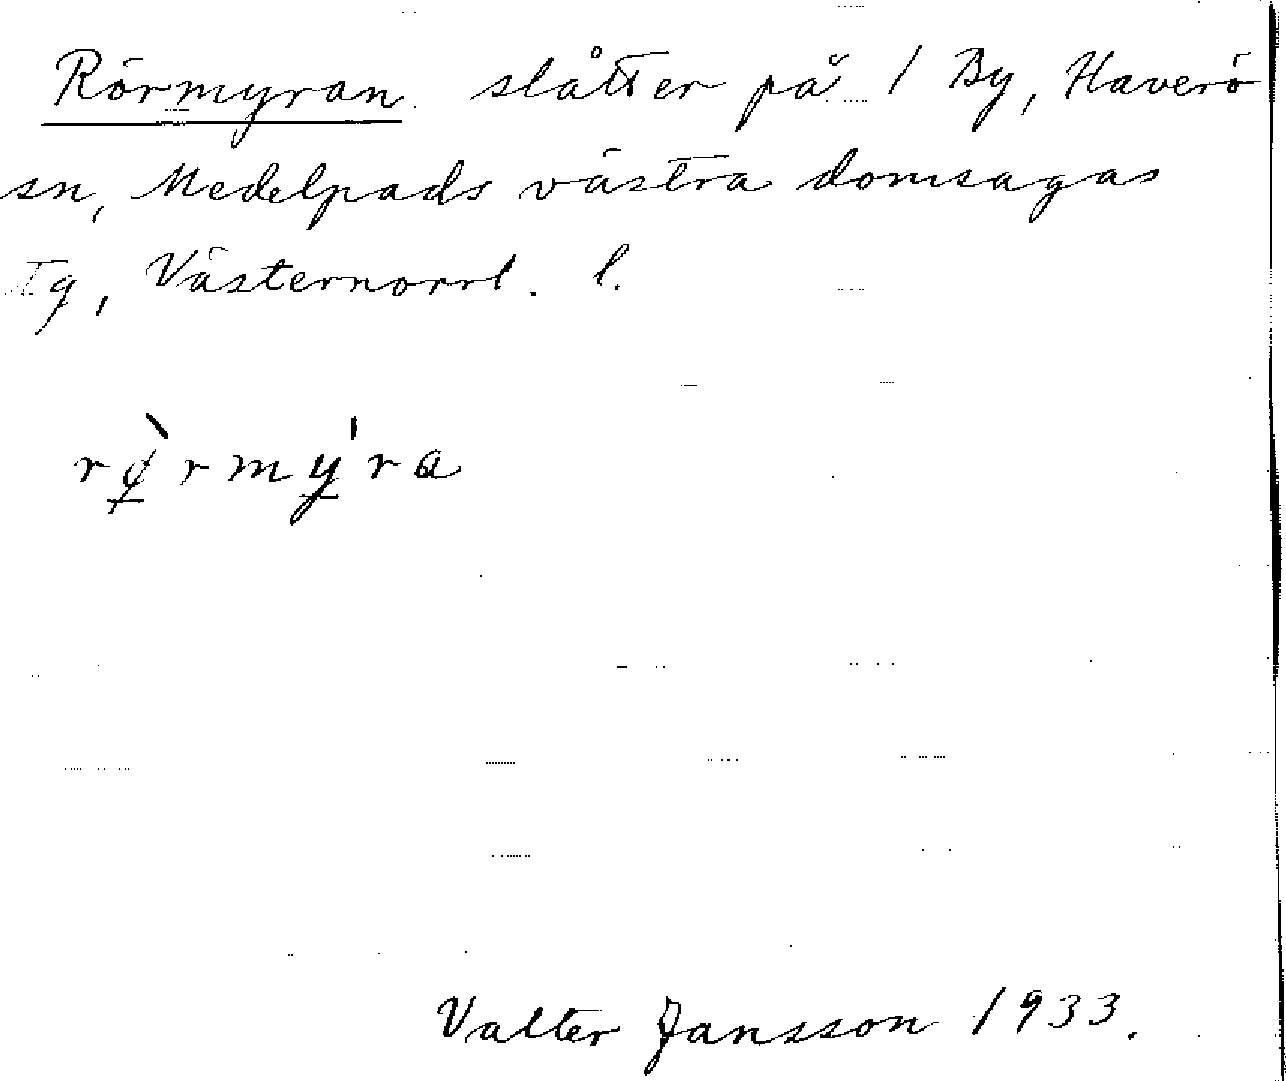 Rörmyran slåtter på 1 By, Haverö
sn, Medelpads västra domsagas
Tg, Västernorrl. l.
rø̠̀rmý̠ra
Valter Jansson 1933.